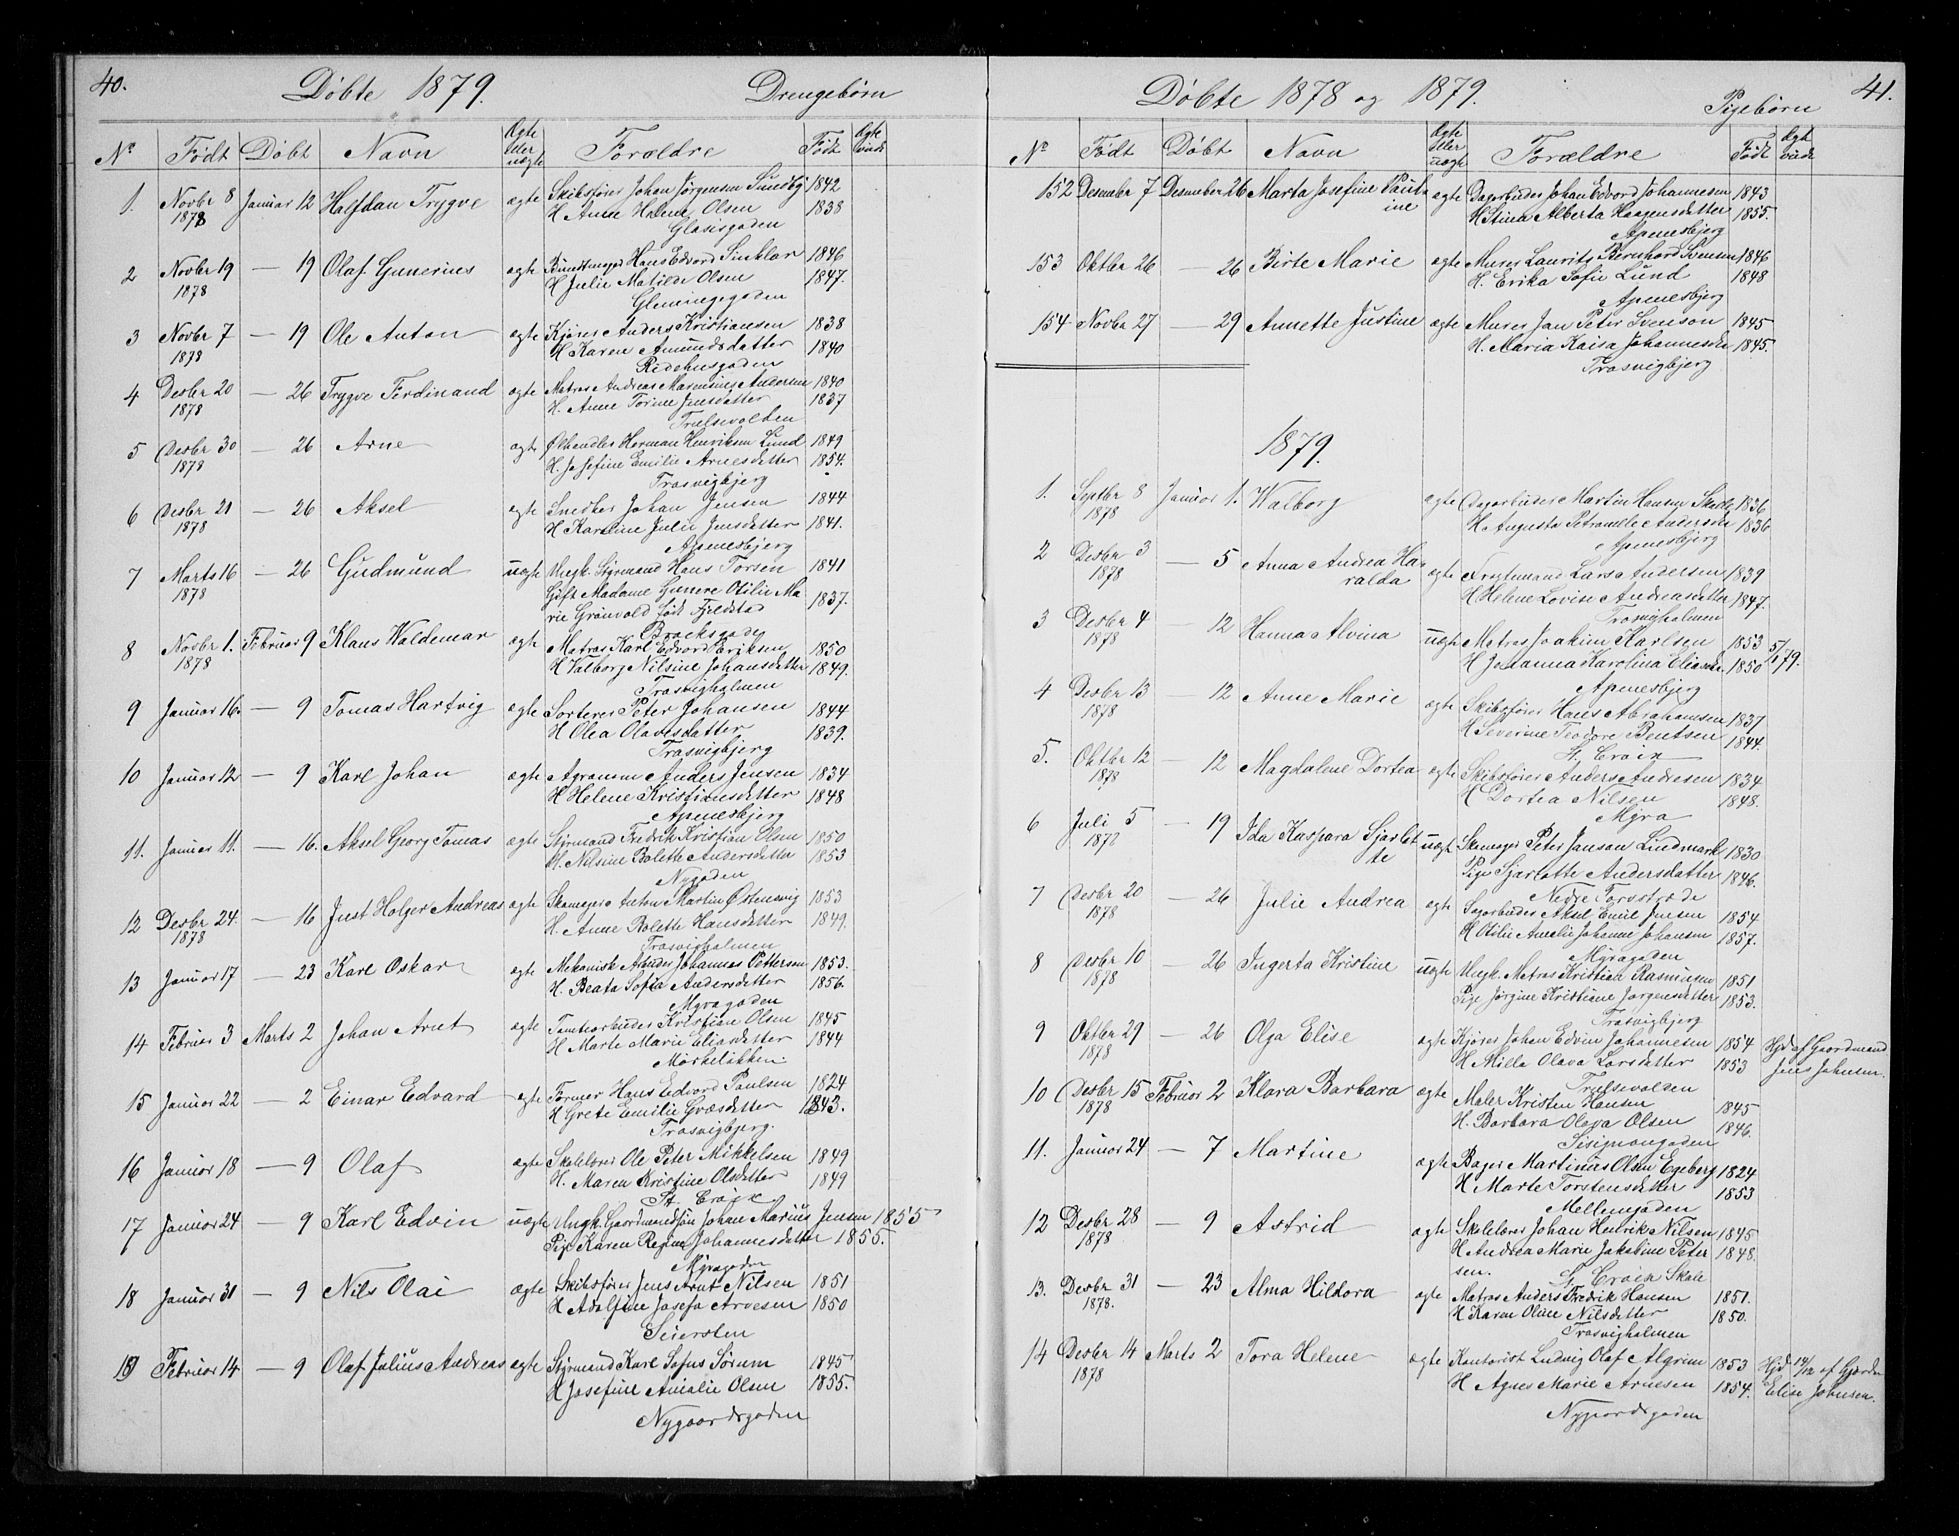 40.
Døbte 1879.
Drengebørn
Nº Født Døbt Navn Ægte eller uægte Forældre Født Ægte viede
1. Novbr 8 1878 Januar 12 Halfdan Trygve ægte Skibsfører Johan Jörgensen Sundby 1842
H. Anne Helene Olsen 1838
Glasisgaden
2 Novbr 19 1878 — 19 Olaf Gunerius ægte Bundtmager Hans Edvard Sinklar 1846
H Julie Matilde Olsen 1847.
Glemingegaden
3 Novbr 7 1878 — 19 Ole Anton ægte Kjører Anders Kristiansen 1838
H. Karen Amundsdatter 1840
Ridehusgaden
4 Desbr 20 1878 — 26 Trygve Ferdinand ægte Matros Andreas Andersen 1840
H. Anne Jensdatter 1837
Truelsevolden
5 Desbr 30 1878 — 26 Arne ægte Ølhandler Herman Henriksen Lund 1849
H. Josefine Emilie Arnesdatter 1854.
Trosvigbjerg
6 Desbr 21 1878 — 26 Aksel ægte Snedker Johan Jensen 1844
H Karoline Julie Jensdatter 1841.
Apenesbjerg
7 Marts 16 1878 — 26 Gudmund uægte Ungk. Styrmand Hans Torsen 1841
Gift Madame Gunere Otilie Ma
rie Grönvold född Fjeldstad 1837.
Brocksgaden
8 Novbr 1. 1878 Februar 9 Klaus Waldemar ægte Matros Karl Edvard Eriksen 1850
H Valborg Nilsine Johansdatter 1849.
Trosvigholmen
9 Januar 16. — 9 Tomas Hartvig ægte Sorterer Peter Johansen 1844
H Olea Olavesdatter 1839.
Trosvigbjerg
10 Januar 12 — 9 Karl Johan ægte Agronom Anders Jensen 1834
H Helene Kristiansdatter 1848
Apenesbjerg
11. Januar 11. — 16. Aksel Georg Tomas ægte Styrmand Fredrik Kristian Olsen 1850
H. Nilsine Bolette Andersdatter 1853
Nygaden
12 Desbr 24. 1878 — 16 Just Holger Andreas ægte Skomager Anton Martin Østensvig 1853
H. Anne Bolette Hansdatter 1849.
Trosvigholmen
13 Januar 17 — 23 Karl Oskar ægte Mekanisk Arbeider Johannes Pettersen 1853.
H. Beata Sofia Andersdatter 1856.
Myragaden
14 Februar 3 Marts 2 Johan Arnt ægte Tomtearbeider Kristian Olsen 1845
H Marte Marie Eliasdatter 1844
Mörkeløkken.
15 Januar 22 — 2 Einar Edvard ægte Former Hans Edvard Paulsen 1824
H Grete Emilie 1843.
Trosvigbjerg.
16 Januar 18 — 9 Olaf ægte Skolelærer Ole Peter Mikkelsen 1849
H. Maren Kristine Olsdatter 1849
St. Croix
17 Januar 24 — 9 Karl Edvin uægte Ungk. Gaardmandssön Johan Marius Jensen 1855
Pige Karen Regine Johannesdatter 1855.
Myragaden
18 Januar 31 — 9 Nils Olai ægte Skibsfører Jens Arnt Nilsen 1851
H Adolfine Josefa Arvesen 1850
Seiersten
Februar 14 — 9 Olaf Julius Andreas ægte Styrmand Karl Sofus Sörum 1845
H Josefine Amalie Olsen 1855.
Nygaardsgaden
41.
Døbte 1878 og 1879.
Pigebørn
Nº Født Døbt Navn Ægte eller uægte Forældre Født Ægte viede
152 Desember 7 Desember 26 Marta Josefine Paul
ine ægte Dagarbeider Johan Edvard Johannesen 1843
H Stina Alberta Haagensdatter 1855.
Apenesbjerg
153 Oktbr 26 — 26 Birte Marie ægte Murer Laurits Bernhard Svensen 1846
H. Erika Sofie Lund 1848
Apenesbjerg
154 Novbr 27 — 29 Annette Justine ægte Murer Jan Peter Svenson 1845
H. Maria Kaisa 1845.
Trosvigbjerg
1879.
1. Septbr 8 1878 Januar 1. Walborg ægte Dagarbeider Martin Hansen 1836
H. Augusta Petronelle 1836
Apenesbjerg
2 Desbr 3 1878 — 5 Anna Andrea Ha
ralda ægte Fragtemand Lars Andersen 1839
H Helene Lovise Andreasdatter 1847.
Trosvigholmen
3 Desbr 4 1878 — 12 Hanna Alvina uægte Matros Joakim Karlsen 1853 5/1 79.
H Johanna Karolina 1850
Apenesbjerg
4 Desbr 13 1878 — 12 Anne Marie ægte Skibsfører Hans Abrahamsen 1837
H Severine Teodore Bentsen 1844.
St. Croix
5. Oktbr 12 1878 — 12 Magdalene Dortea ægte Skibsfører Anders Andresen 1834
H Dortea Nilsen 1848.
Myra
6 Juli 5 1878 — 19 Ida Kaspara Sjarlot
te uægt Skomager Peter Janson Lindmark 1830
Pige Sjarlotte Andersdatter 1846.
Nedre Torsstrøde
7 Desbr 20 1878 — 26 Julie Andrea ægt Sagarbeider Aksel Emil Jensen 1854.
H Otilie Amalie Johanne Johansen 1857.
Myragaden
8 Desbr 10 1878 — 26 Ingerta Kristine uægte Ungk. Matros Kristian Rasmusen 1851
Pige Jörgine Kristiane Jörgensdatter 1853.
Trosvigbjerg
9 Oktbr 29 1878 — 26 Olga Elise ægte Kjører Johan Edvin Johannesen 1854 Hjd af Gaardmand
H Milla Olava Larsdatter 1853 Jens Johnsen.
Truelsevolden
10 Desbr 15 1878 Februar 2 Klara Barbara ægte Maler Kristen Hansen 1845
H. Barbara Olava Olsen 1846.
Sisignongaden
11. Januar 24 — 7 Martine ægte Bager Martinus Olsen Egeberg 1824
H Marte Torstensdatter 1853
Mellemgaden
12 Desbr 28 1878 — 9 Astrid ægte Skolelærer Johan Henrik Nilsen 1845
H Andrea Marie Jakobine Peter 1848.
sen. St Croix Skole
13. Desbr 31 1878. — 23 Alma Hildora ægte Matros Anders Fredrik Hansen 1851.
H Karen Oline Nilsdatter 1850.
Trosvigholmen
14 Desbr 14 1878 Marts 2 Tora Helene ægte Kontorist Ludvig Olaf Algrim 1853 Hjd 14/12 af Gjordm
H Agnes Marie Arnesen 1854. Elise Johnsen.
Nygaardsgaden